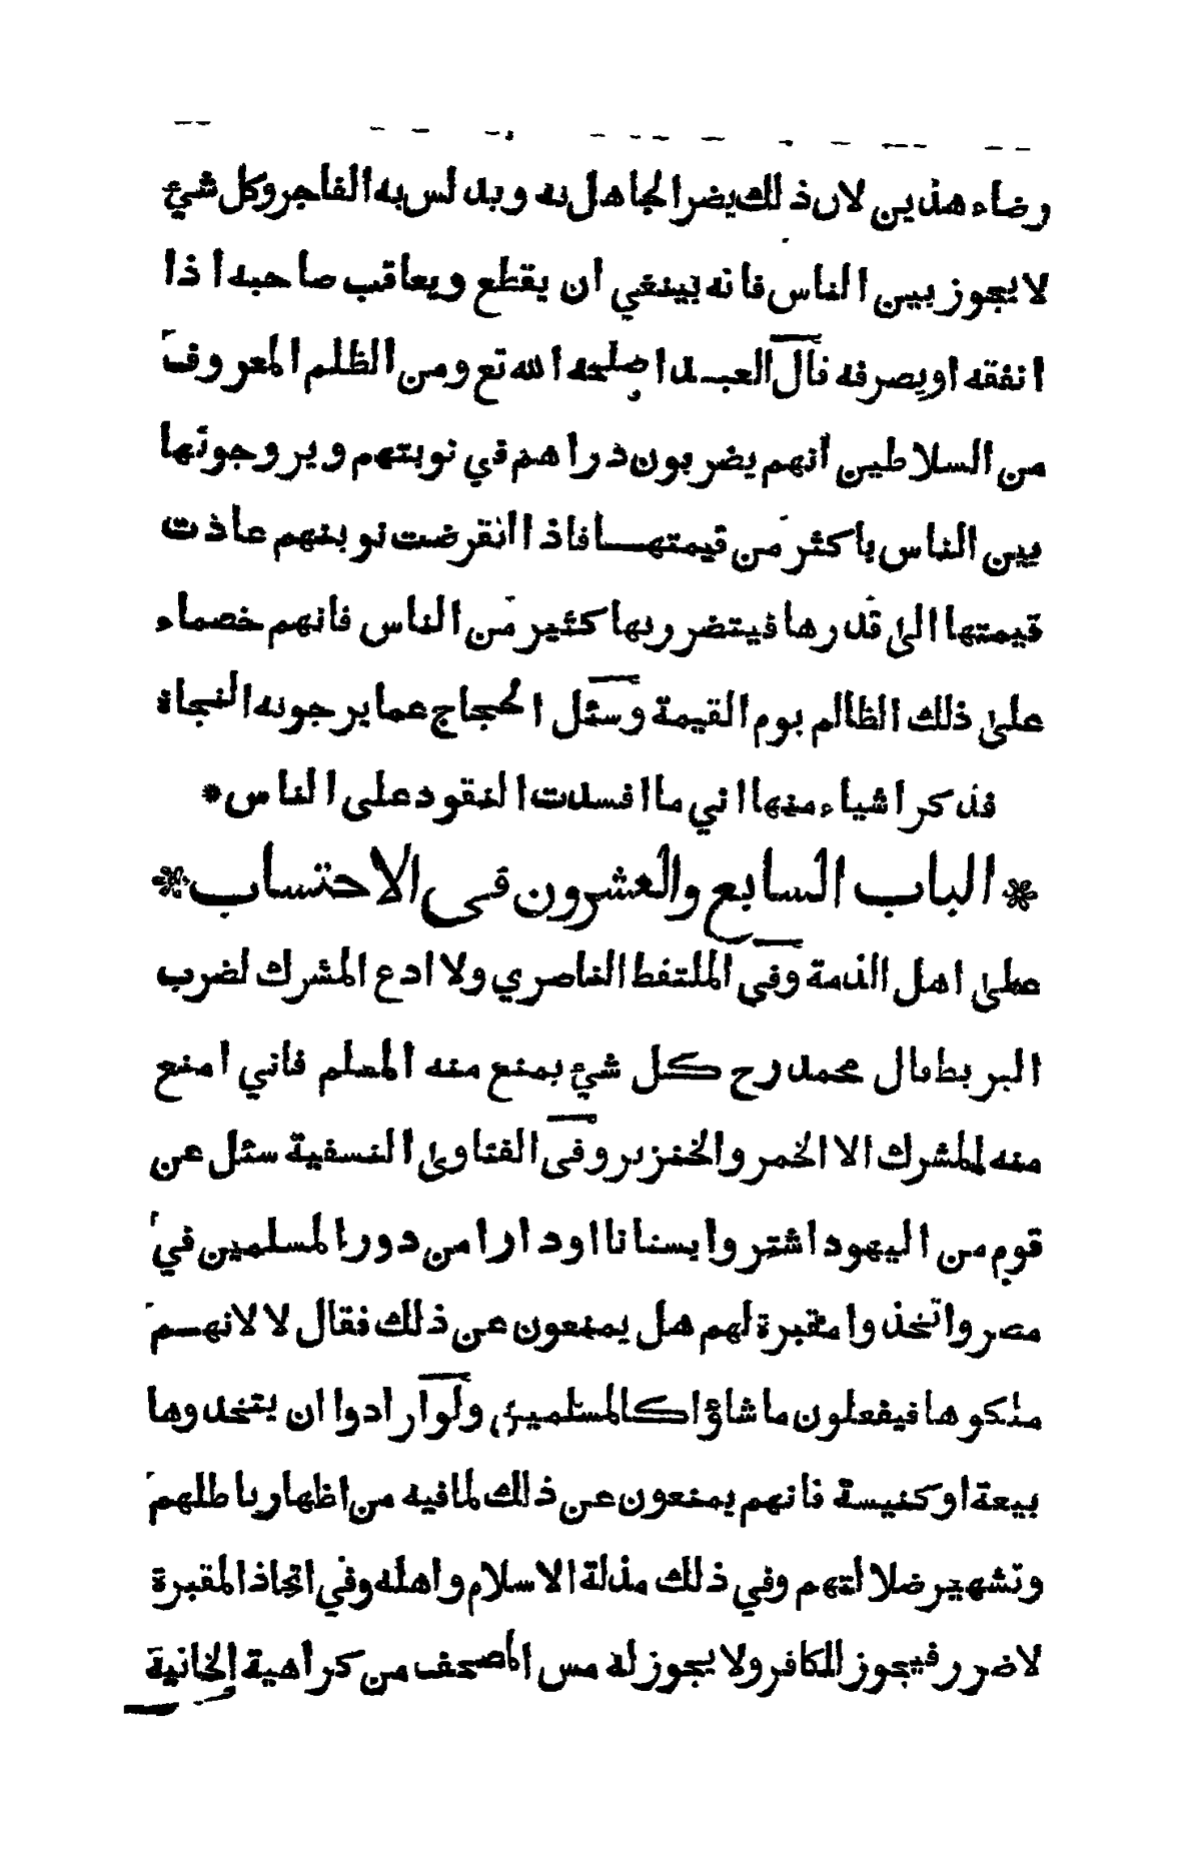 رضاء هذين لان ذلك يضر الجاهل به ويدلس به الفاجر وكل شيء
لا يجوز بين الناس فانه ينبغي ان يقطع ويعاقب صاحبه اذا
انفقه او يصرفه قال العبد اصلحه الله تع ومن الظلم المعروف
من السلاطين انهم يضربون دراهم في نوبتهم ويروجونها
بين الناس باكثر من قيمتها فاذا انقرضت نوبتهم عادت
قيمتها الى قدرها فيتضرر بها كثير من الناس فانهم خصماء
على ذلك الظالم يوم القيمة وسئل الحجاج عما يرجو به النجاة
فذكر اشياء منها اني ما افسدت النقود على الناس *
* الباب السابع والعشرون في الاحتساب *
على اهل الذمة وفي الملتقط الناصري ولا ادع المشرك لضرب
البربط قال محمد رح كل شيء يمنع منه المسلم فاني امنع
منه المشرك الا الخمر والخنزير وفي الفتاوى النسفية سئل عن
قوم من اليهود اشتروا بستانا او دارا من دور المسلمين في
مصر واتخذوا مقبرة لهم هل يمنعون عن ذلك فقال لا لانهم
ملكوها فيفعلون ما شاؤا كالمسلمين ولو ارادوا ان يتخذوها
بيعة او كنيسة فانهم يمنعون عن ذلك لما فيه من اظهار باطلهم
وتشهير ضلالتهم وفي ذلك مذلة الاسلام واهله وفي اتخاذ المقبرة
لا ضرر فيجوز للكافر ولا يجوز له مس المصحف من كراهية الخانية